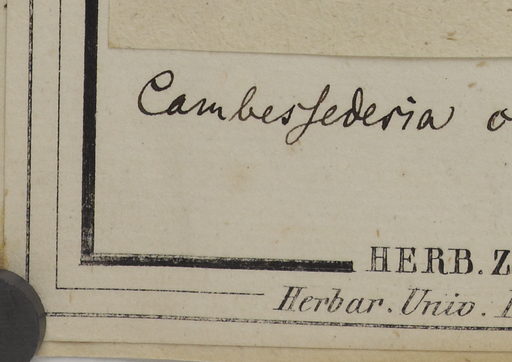 Cambessedesia
HERB. Z
Herbar. Univ.